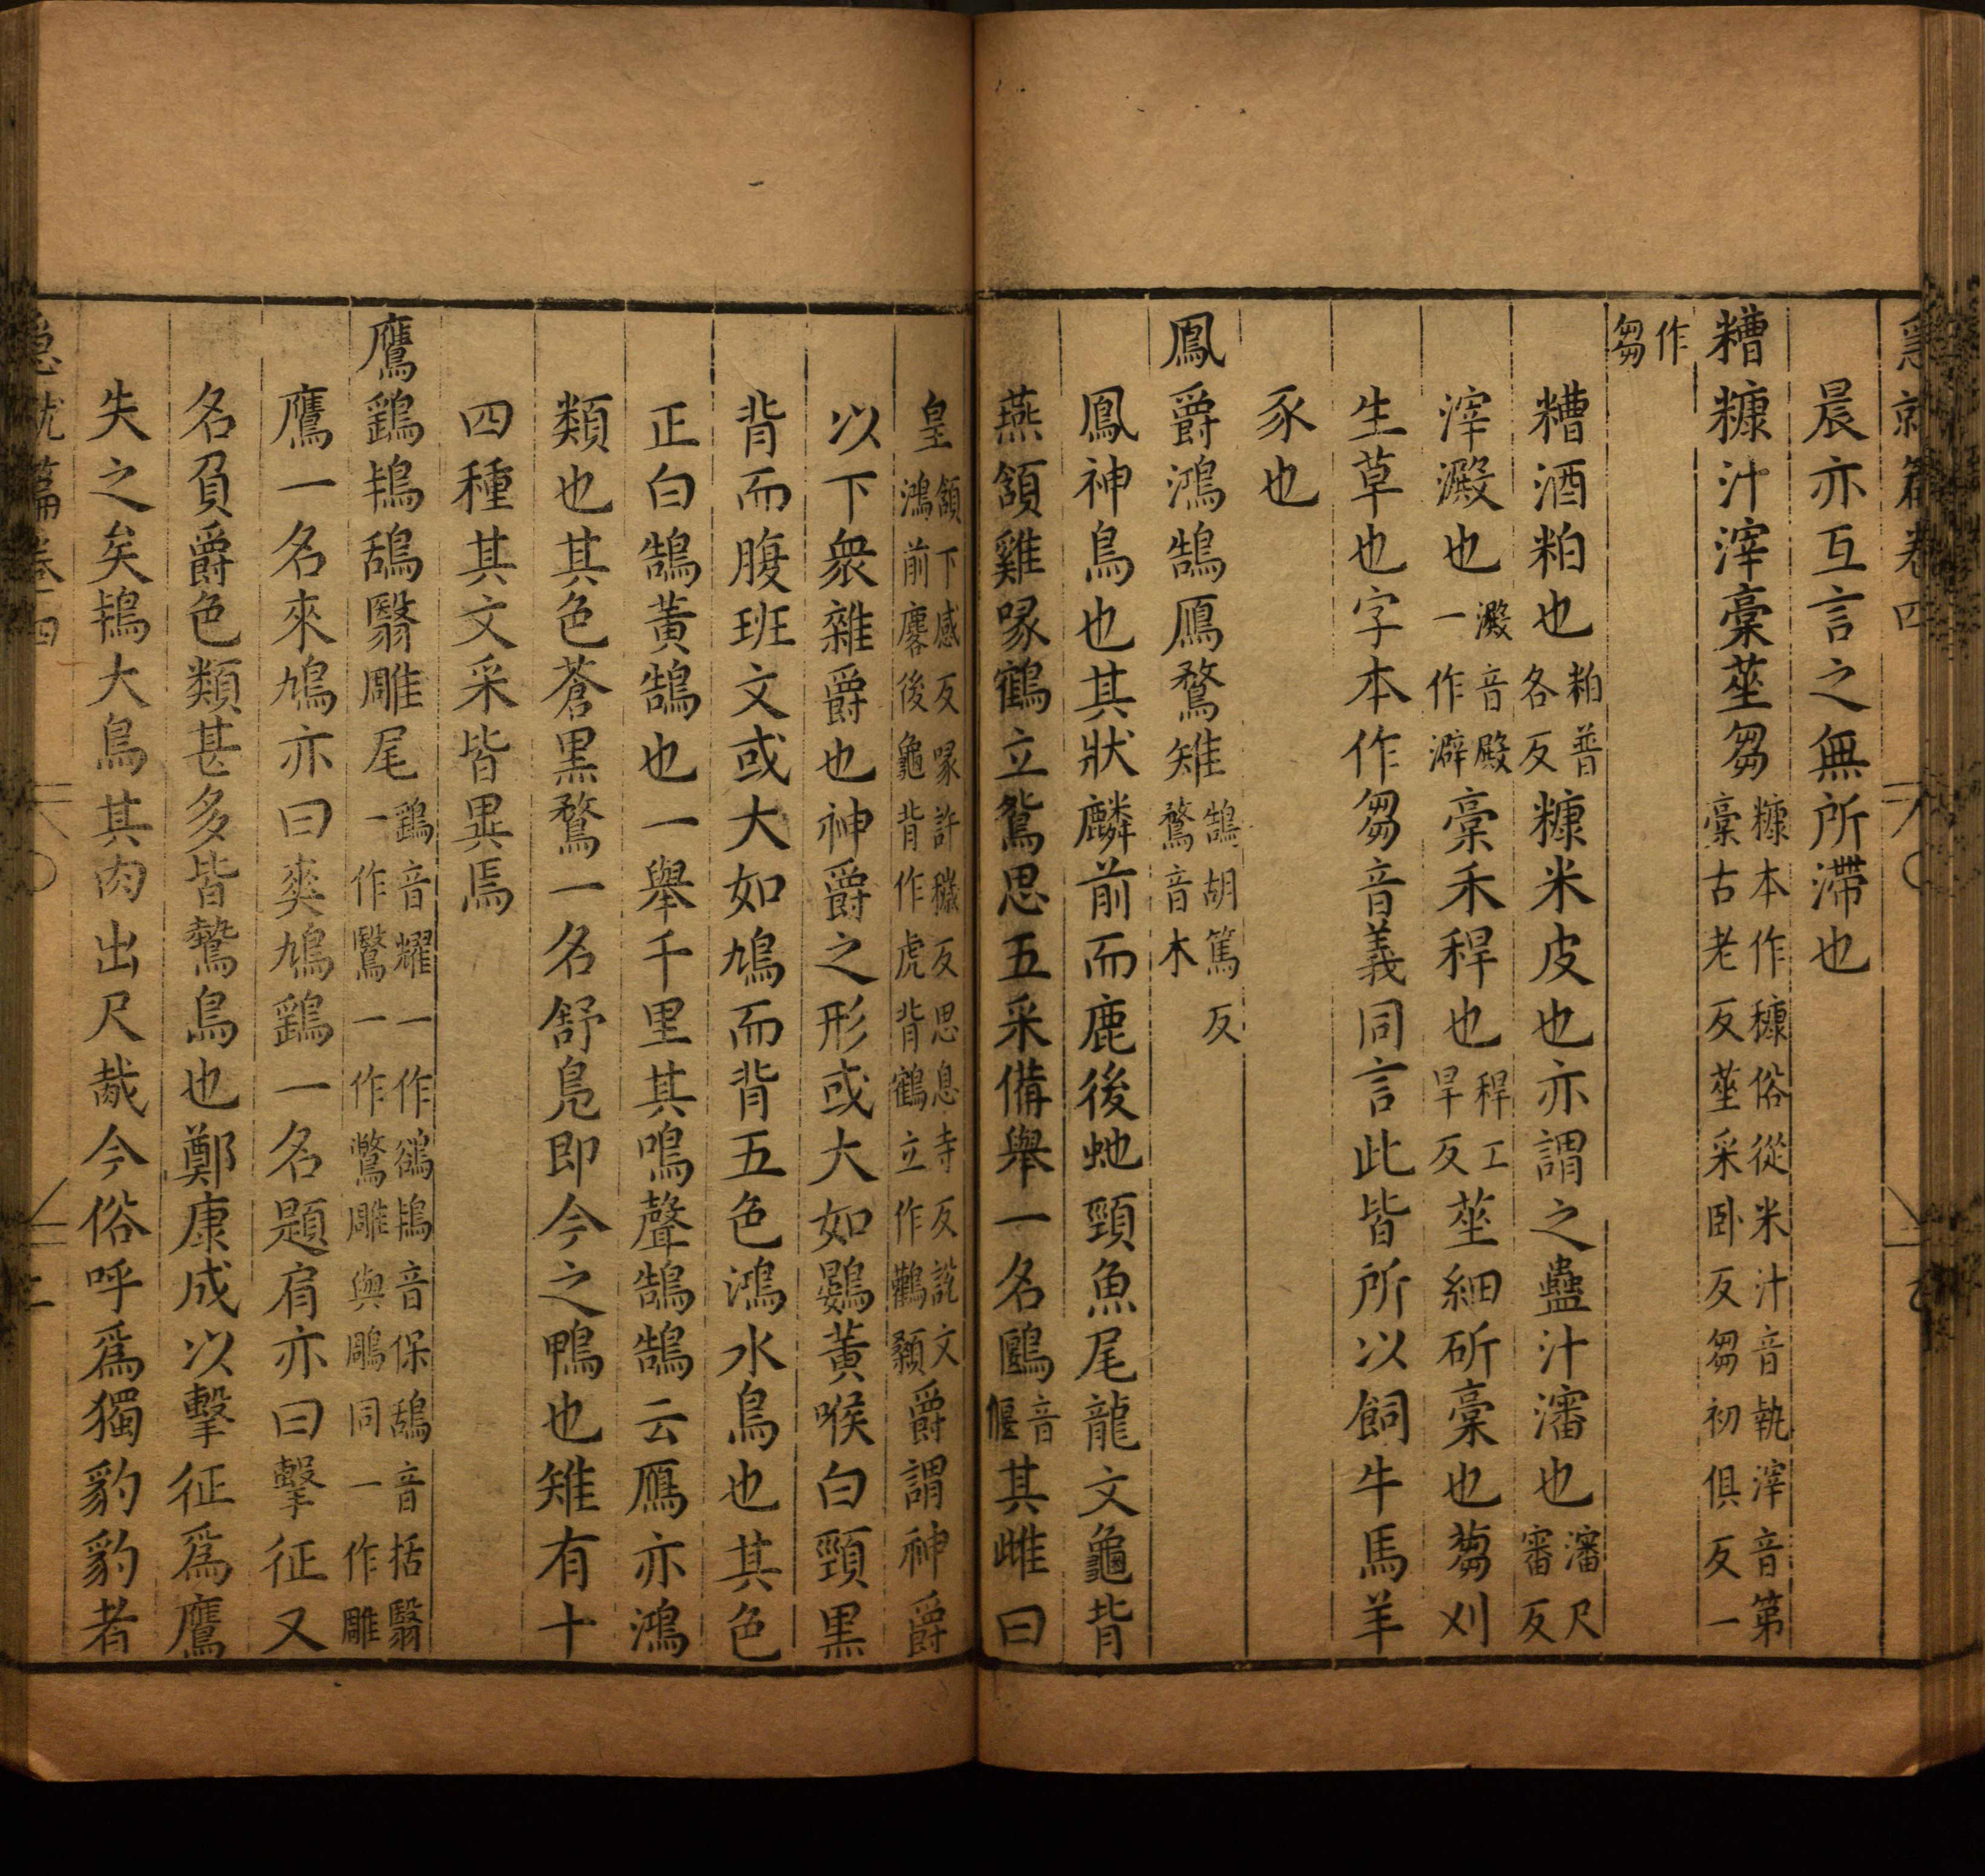 急就篇卷四
晨亦互言之無所滯也
糟糠汁滓稾莝芻糠本作穅俗從米汁音執滓音第稾古老反莝采卧反芻初俱反一
作芻
糟酒粕也粕普各反糠米皮也亦謂之蠱汁瀋也瀋尺審反
滓澱也澱音殿一作澼稾禾稈也稈工旱反莝細斫稾也蒭刈
生草也字本作芻音義同言此皆所以飼牛馬羊
豕也
鳳爵鴻鵠鴈鶩雉鵠胡篤反鶩音木
鳳神鳥也其狀麟前而鹿後虵頸魚尾龍文龜背
燕頷雞喙鶴立鴛思五采備舉一名鶠音偃其雌曰
皇頷下感反喙許穢反思息寺反說文鴻前麐後龜背作虎背鶴立作鸛顙爵謂神爵
以下衆雜爵也神爵之形或大如鷃黃喉白頸黑
背而腹班文或大如鳩而背五色鴻水鳥也其色
正白鵠黃鵠也一舉千里其鳴聲鵠鵠云鴈亦鴻
類也其色蒼黑鶩一名舒鳧即今之鴨也雉有十
四種其文采皆異焉
鷹鷂鴇鴰翳雕尾鷂音耀一作鷭鴇音保鴰音括翳一作鷖一作鷩雕與鵰同一作雕
鷹一名來鳩亦曰爽鳩鷂一名題肩亦曰擊征又
名負爵色類甚多皆鷙鳥也鄭康成以擊征爲鷹
失之矣鴇大鳥其肉出尺胾今俗呼爲獨豹豹者
急就篇卷四